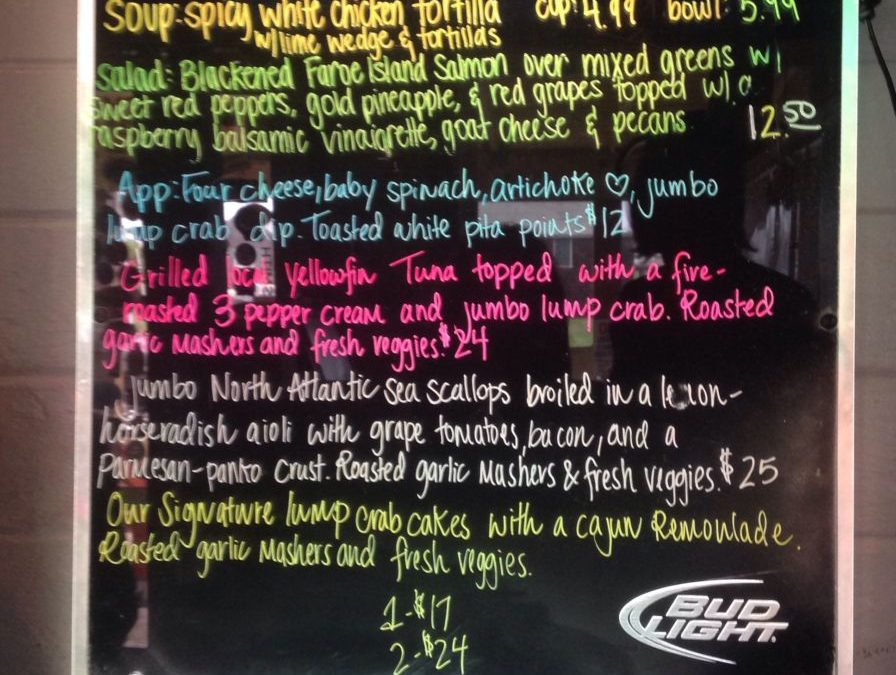 Soup: spicy white chicken tortilla cup: 4.99 bowl: 5.99
w/lime wedge & tortillas
Salad: Blackened Faroe Island Salmon over mixed greens w/
sweet red peppers, gold pineapple, & red grapes topped w/ a
raspberry balsamic vinaigrette, goat cheese & pecans 12.50
App: Four cheese, baby spinach, artichoke ♡, jumbo
lump crab dip. Toasted white pita points $12
Grilled local yellowfin Tuna topped with a fire-
roasted 3 pepper cream and jumbo lump crab. Roasted
garlic mashers and fresh veggies. $24
Jumbo North Atlantic sea scallops broiled in a lemon-
horseradish aioli with grape tomatoes, bacon, and a
Parmesan-panko crust. Roasted garlic mashers & fresh veggies. $25
Our Signature lump crab cakes with a cajun Remoulade.
Roasted garlic mashers and fresh veggies.
1-$17
2-$24
BUD
LIGHT